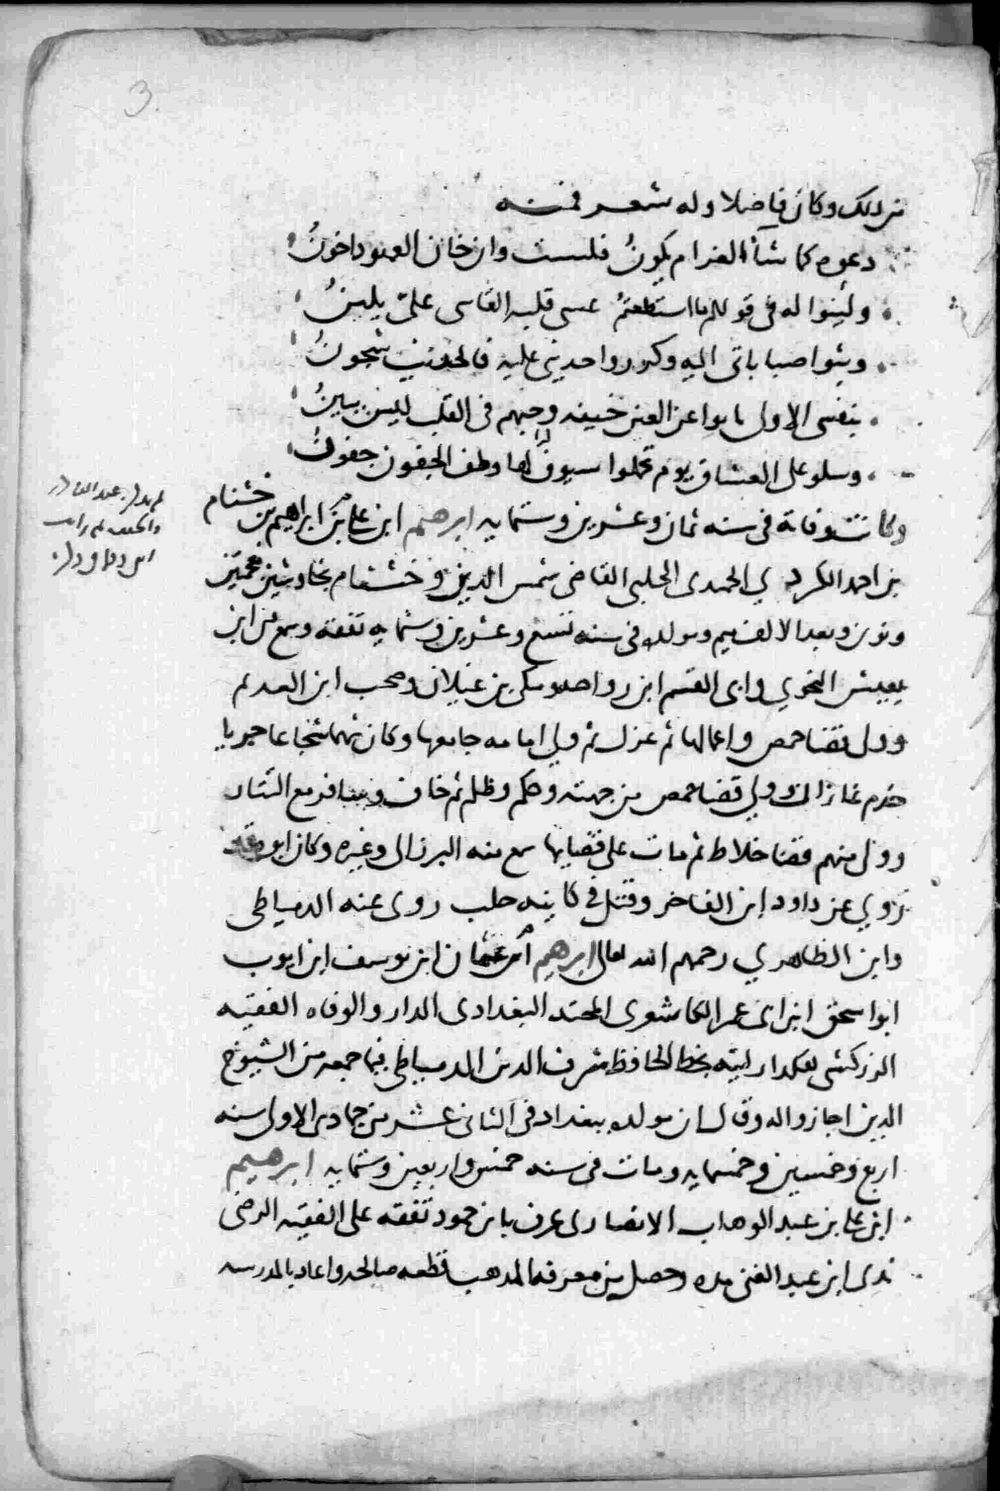 3
من ذلك وكان فاضلا وله شعر فمنه
دعوه كما شأ الغرام يكونُ فلست وان خان العهود اخونُ
ولينوا له في قولكم ما استطعتمُ عسى قلبه القاسى علىّ يلينُ
وبثوا صباباتى اليه وكرروا حديثي عليه فالحديث شجونُ
بنفسى الاولى بانوا عن العين خيفه وحبهم فى القلب ليس يبينُ
وسلو على العشاق يوم تحملوا سيوفُ لها وطف الجفون جفونُ
وكانت وفاته فى سنه ثمان وعشرين وستمايه ابرهيم ابن على بن ابراهيم بن خشنام
بن احمد الكردي الحميدى الحلبى القاضى شمس الدين وخشنام بخا وشين معجمتين
ونون وبعد الالف ميم ومولده فى سنه تسع وعشرين وستمايه تفقه وسمع من ابن
يعيش النحوي وابى القسم ابن رواحه ومكى بن غيلان وصحب ابن العديم
وولى قضا حمص واعمالها ثم عزل ثم ولي امامه جامعها وكان شهما شجاعا جريا
خدم غازان وولي قضا حمص من جهته وحكم وظلم ثم خاف وسافر مع التتار
وولى منهم قضا خلاط ثم مات على قضايها سمع منه البرزالى وغيره وكان ابوه فقيه
روي عن داود ابن الفاخر وقتل في كاينه حلب روى عنه الدمياطى
وابن الظاهري رحمهم الله تعالى ابرهيم بن عثمان ابن يوسف ابن ايوب
ابو اسحق ابن ابى عمر الكاشغرى المحتد البغدادى الدار والوفاه الفقيه
الزركشى هكذا رايته بخط الحافظ شرف الدين الدمياطى فيما جمعه من الشيوخ
الذين اجازوا له وقال ان مولده ببغداد فى الثانى عشر من جمادى الاولى سنه
اربع وخمسين وخمسمايه ومات فى سنه خمس واربعين وستمايه ابرهيم
ابن على بن عبد الوهاب الانصارى عرف بابن حمود تفقه على الفقيه الرضى
ابن عبد الغنى مده وحصل من معرفه المذهب قطعه صالحه واعاد بالمدرسه